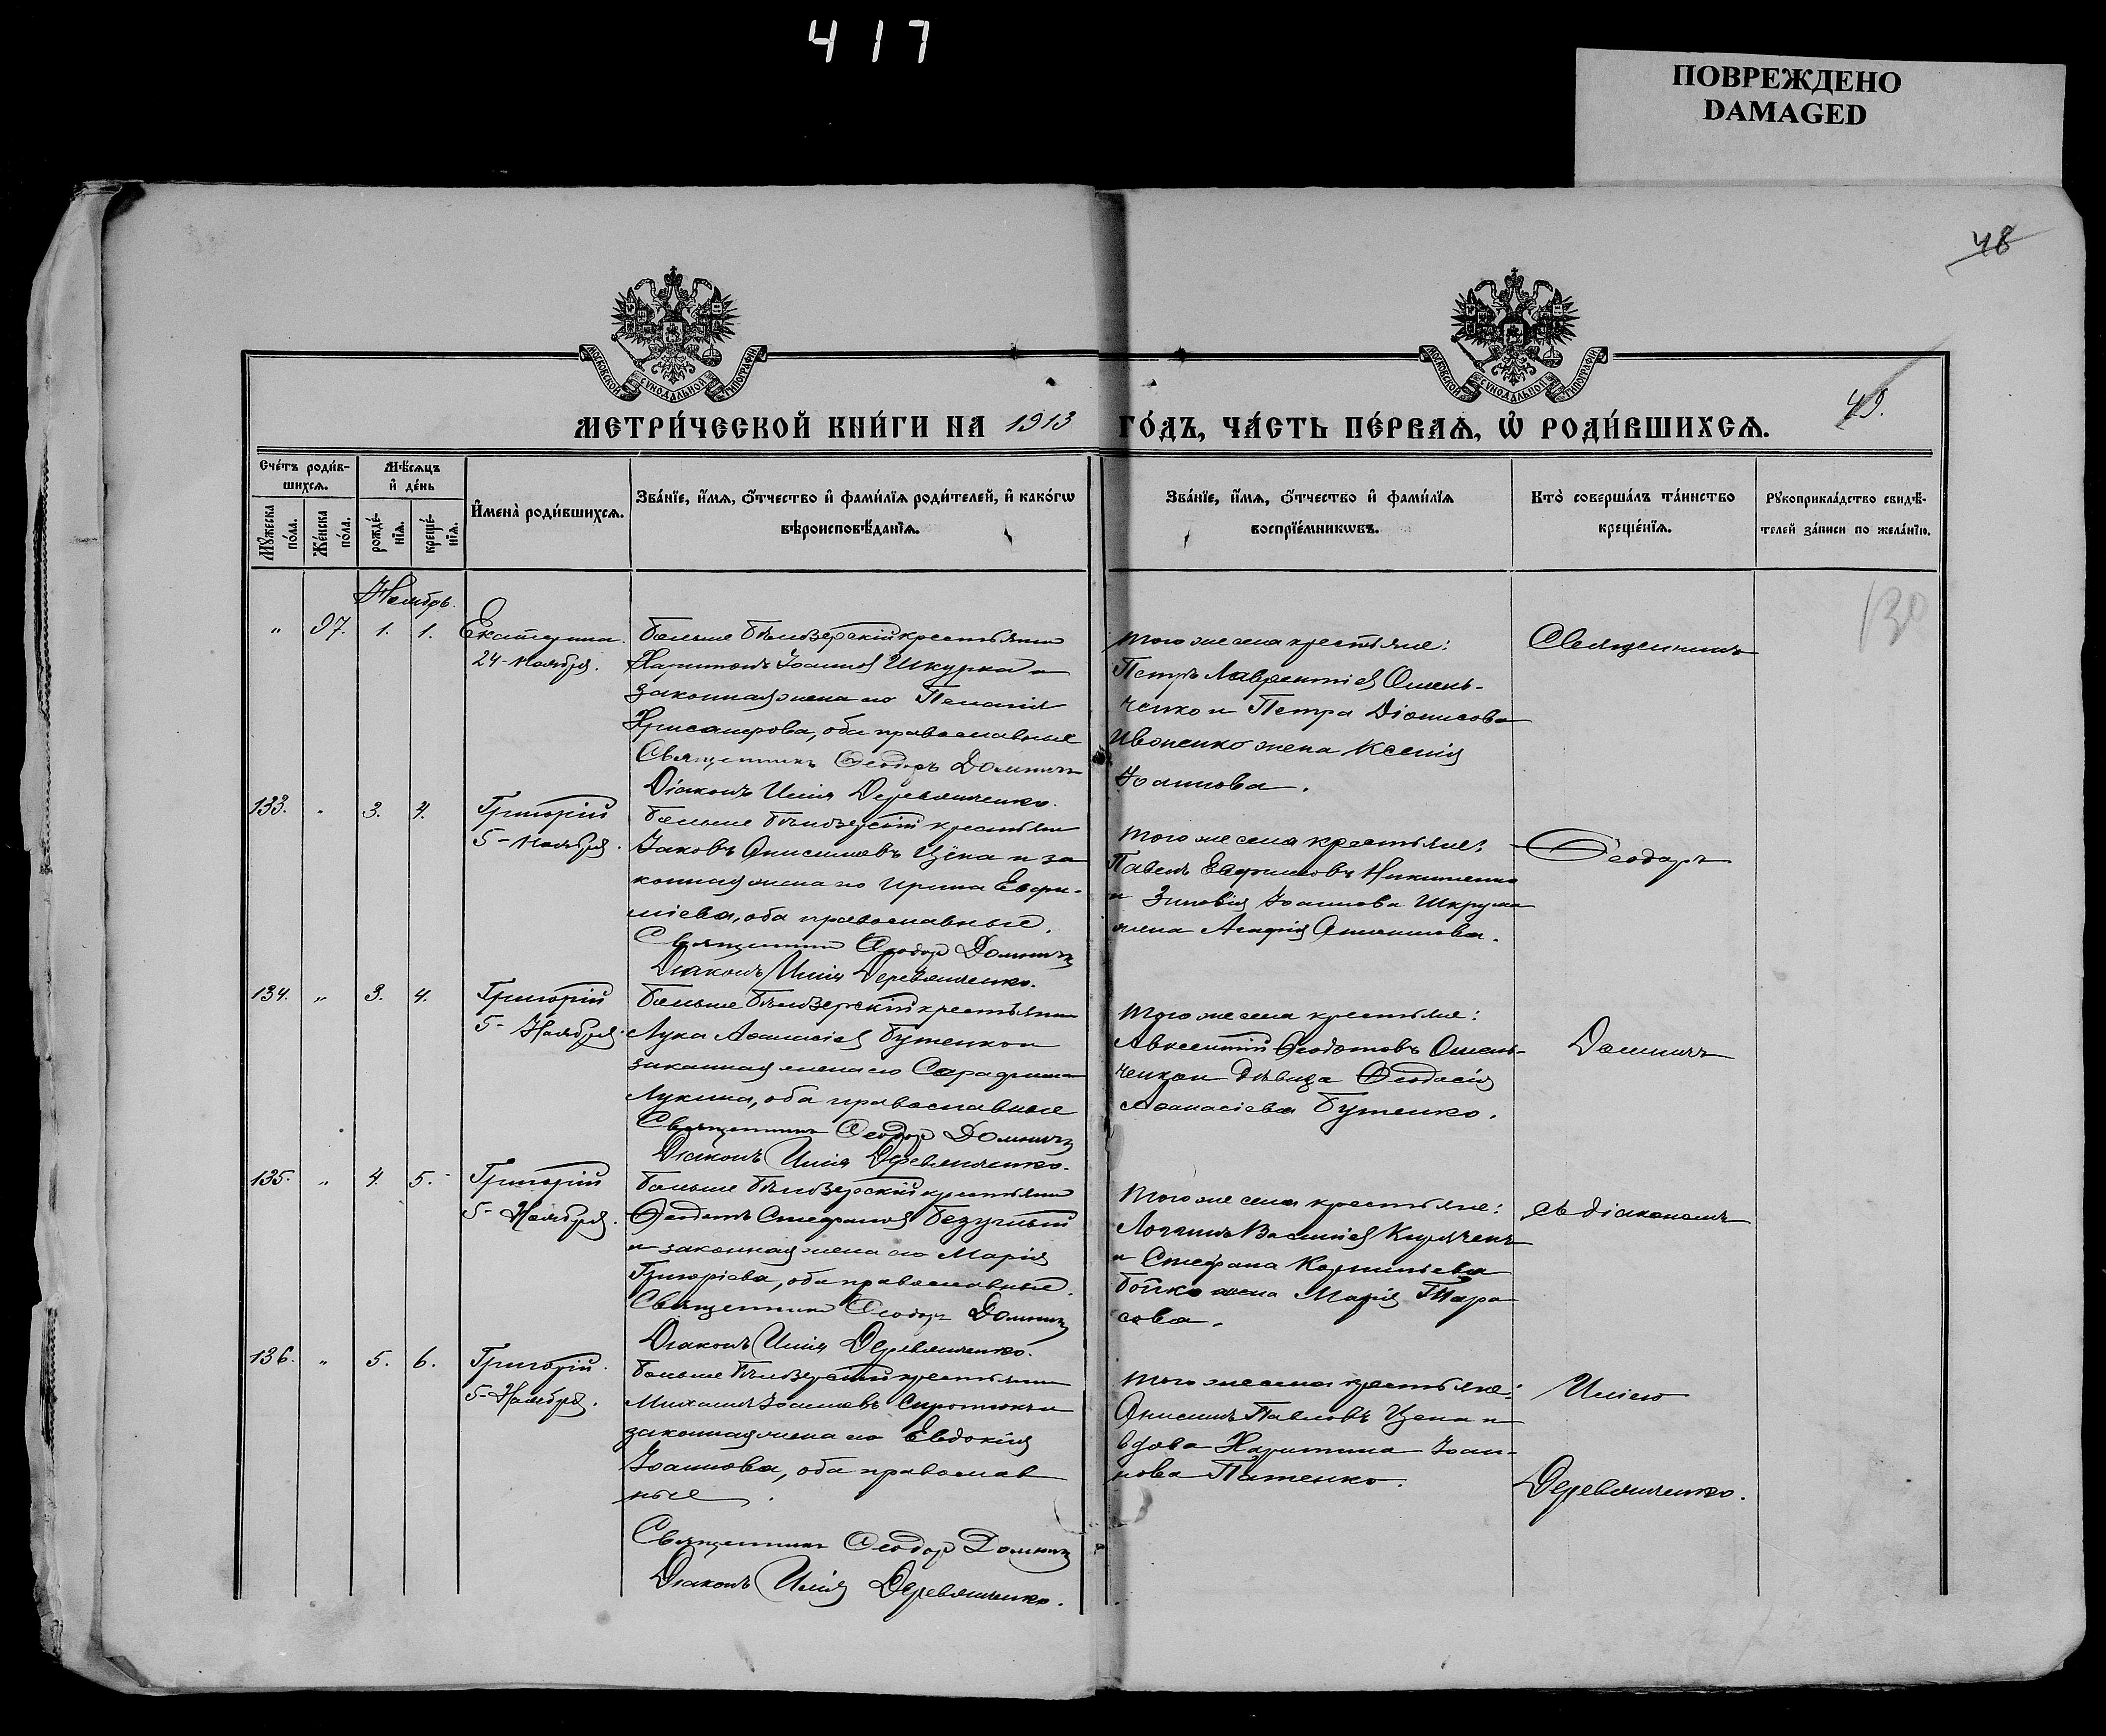 417
ПОВРЕЖДЕНО
DAMAGED
48
МОСКОВСКОЙ СѴНОДАЛЬНОЙ ТИПОГРАФІИ
МОСКОВСКОЙ СѴНОДАЛЬНОЙ ТИПОГРАФІИ
49.
МЕТРИ́ЧЕСКОЙ КНИ́ГИ НА 1913 ГО́ДЪ, ЧА́СТЬ ПЕ́РВАѦ, Ѡ҆ РОДИ́ВШИХСѦ.
Сче́тъ роди́в-
шихсѧ.
Мꙋ́жеска
по́ла.
Же́нска
по́ла.
Мѣ́сѧцъ
и҆ де́нь
рожде́-
нїѧ.
креще́-
нїѧ.
И҆мена̀ роди́вшихсѧ.
Зва́нїе, и҆́мѧ, ѻ҆́тчество и҆ фами́лїѧ роди́телей, и҆ како́гѡ
вѣроисповѣ́данїѧ.
Зва́нїе, и҆́мѧ, ѻ҆́тчество и҆ фами́лїѧ
воспрїе́мникѡвъ.
Кто̀ соверша́лъ та́инство
креще́нїѧ.
Рꙋкоприкла́дство свидѣ́-
телей за́писи по жела́нїю.
130
Ноябрь.
" 97. 1. 1.
Екатерина.
24 - Ноября.
Больше Бѣлозерскій крестьянин
Харитонъ Іоаннов Шкурка и
законная жена его Пелагія
Хрисанфова, оба православные
Священникъ Ѳеодоръ Домнич
Діаконъ Илія Деревянченко.
того же села крестьяне:
Петръ Лаврентіев Омель-
ченко и Петра Діонисова
Ивоненко жена Ксенія
Іоаннова.
Священникъ
133. " 3. 4.
Григорій
5 - Ноября.
Больше Бѣлозерскій крестьянин
Іаковъ Онисимовъ Цѣпа и за
конная жена его Ирина Евфи-
міева, оба православные.
Священник Ѳеодор Домнич
Діаконъ Илія Деревянченко.
того же села крестьяне:
Павелъ Евфимовъ Никитенко
и Іоаннова
жена Агафія
Ѳеодоръ
134. " 3. 4.
Григорій
5 - Ноября.
Больше Бѣлозерскій крестьянин
Лука Аѳанасіев Бутенко и
законная жена его Серафима
Лукина, оба православные
Священникъ Ѳеодор Домнич
Діаконъ Илія Деревянченко.
того же села крестьяне:
Авксентій Ѳеодотовъ Омель-
ченко и дѣвица Ѳеодосія
Аѳанасіева Бутенко.
Домничъ
135. " 4. 5.
Григорій
5 - Ноября.
Больше Бѣлозерскій крестьянин
Ѳеодотъ Стефанов Безуглый
и законная жена его Марія
Григоріева, оба православные.
Священник Ѳеодоръ Домнич
Діаконъ Илія Деревянченко.
того же села крестьяне:
Логгинъ Василіев
и Стефана Корниліева
Бойко жена Марія Тара
сова.
съ діакономъ
136. " 5. 6.
Григорій.
5 - Ноября.
Больше Бѣлозерскій крестьянин
Михаилъ Іоанновъ Сиротюкъ и
законная жена его Евдокія
Іоаннова, оба православ
ные.
Священникъ Ѳеодор Домнич
Діаконъ Илія Деревянченко.
того же села крестьяне:
Онисимъ Павловъ Цепа и
вдова Харитина Іоан-
нова Патенко.
Иліею
Деревянченко.